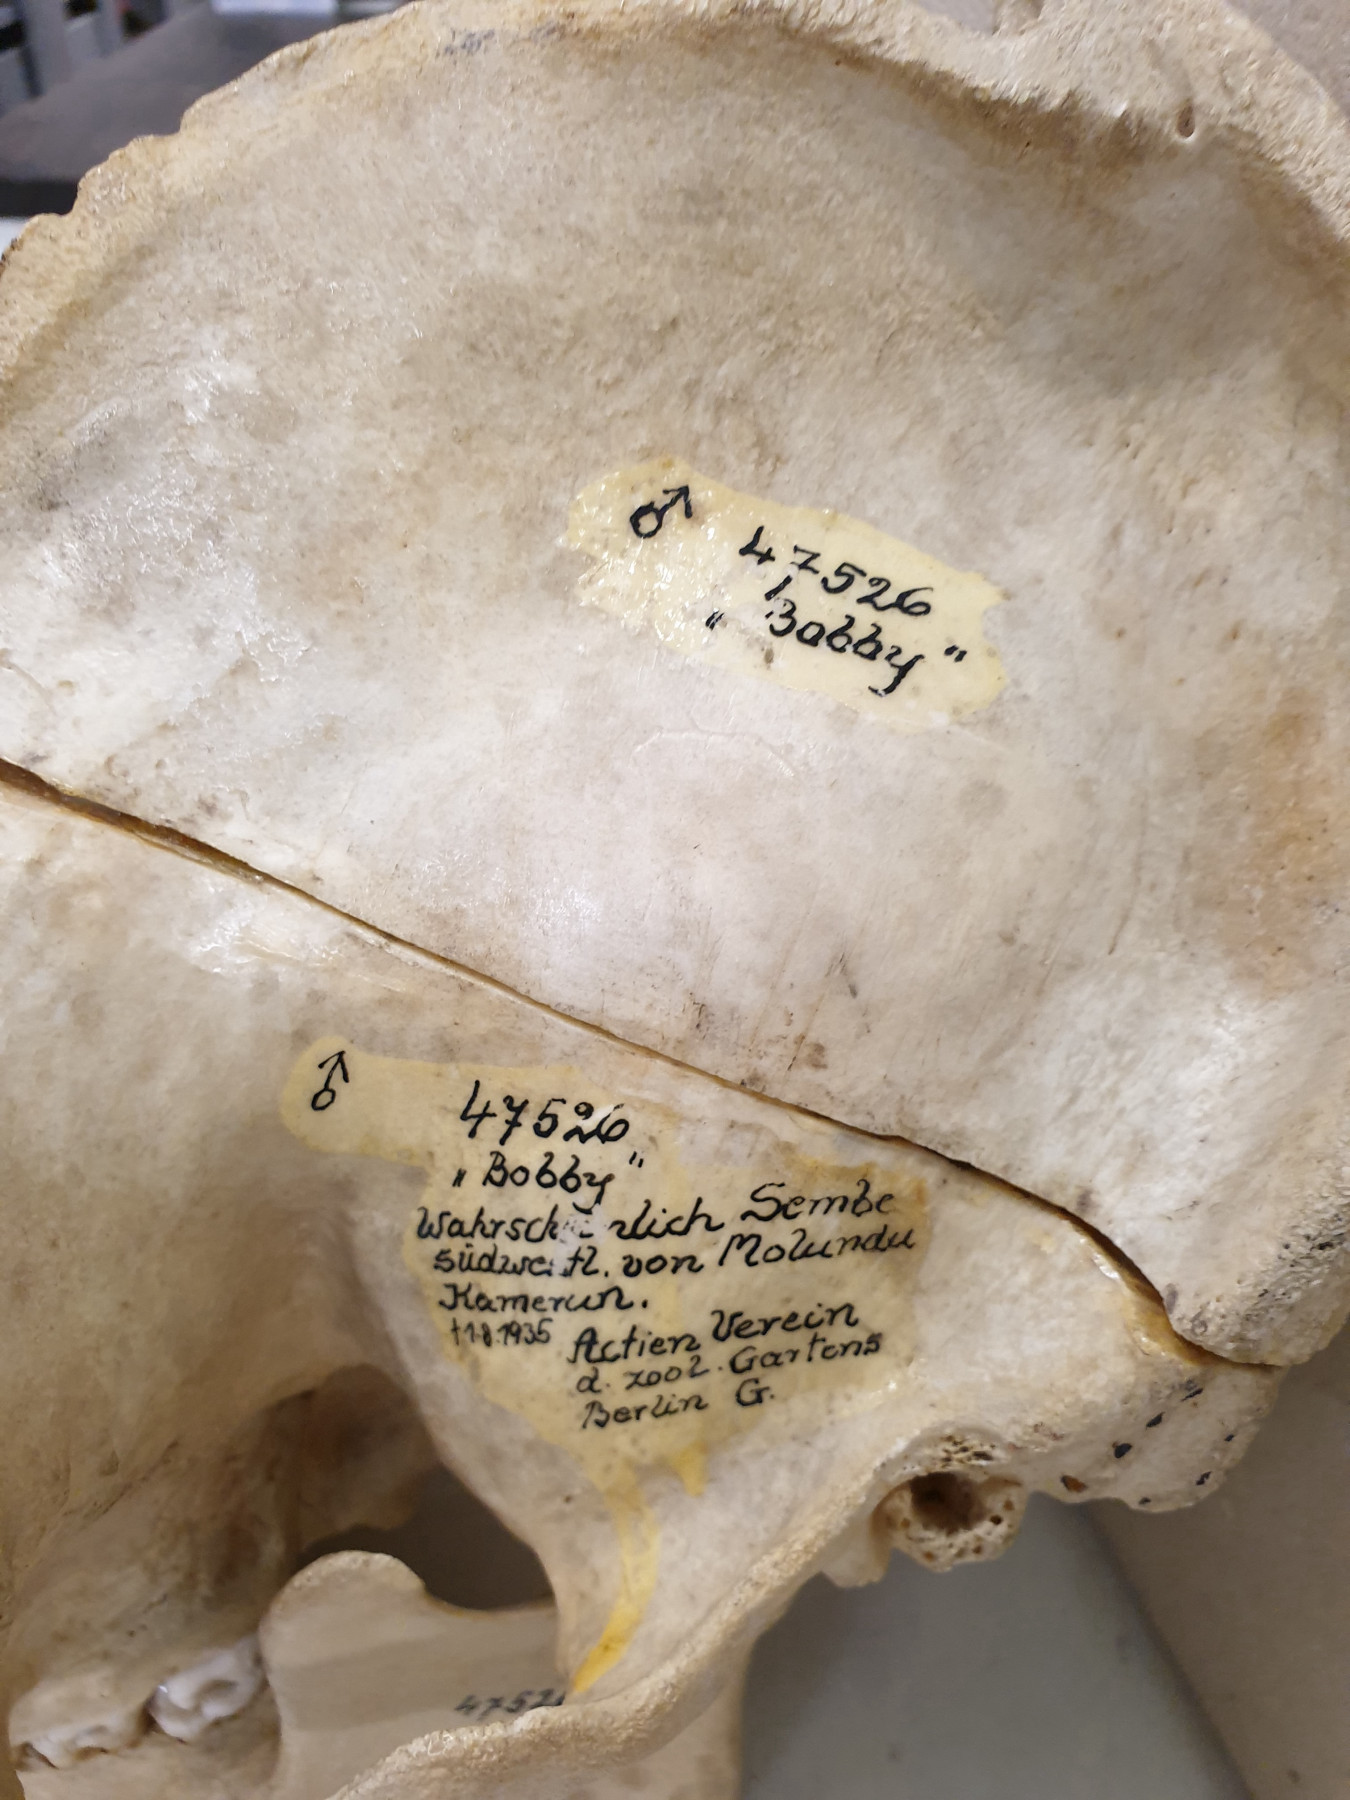 ♂ 47526
„Bobby"
♂ 47526
„Bobby"
Wahrscheinlich Sembe
südwestl. von Molundu
Kamerun.
†1.8.1935 Actien Verein
d. zool. Gartens
Berlin G.
4752